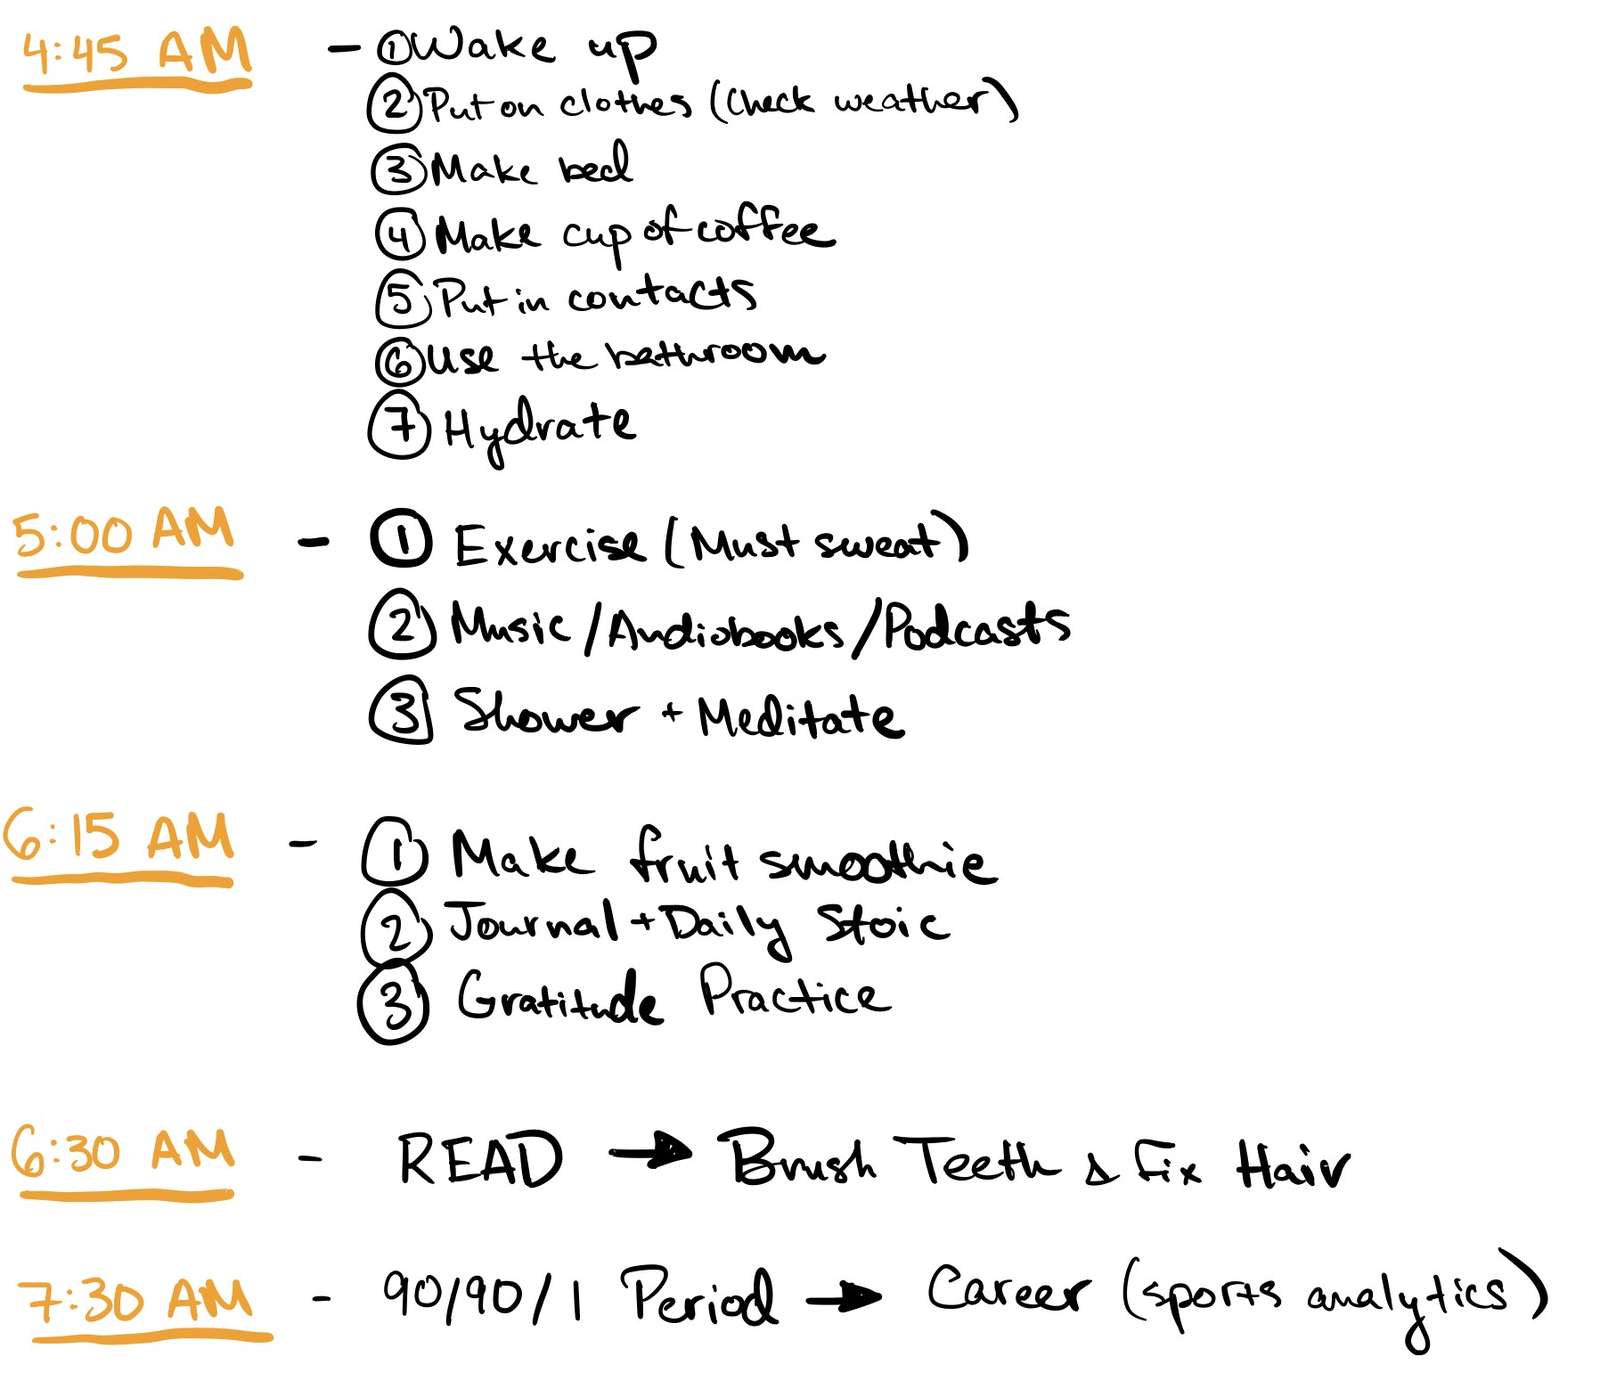 4:45 AM - ① Wake up
② Put on clothes (Check weather)
③ Make bed
④ Make cup of coffee
⑤ Put in contacts
⑥ Use the bathroom
⑦ Hydrate
5:00 AM - ① Exercise (Must sweat)
② Music/Audiobooks/Podcasts
③ Shower + Meditate
6:15 AM - ① Make fruit smoothie
② Journal + Daily Stoic
③ Gratitude Practice
6:30 AM - READ → Brush Teeth & Fix Hair
7:30 AM - 90/90/1 Period → Career (sports analytics)